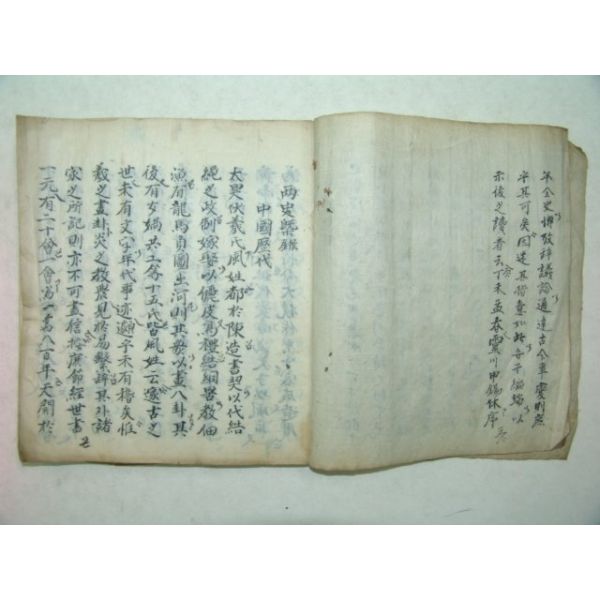 全史博攷詳議論通達古今則無
乎其可矣因述其意如此于編端以
示後之讀者云丁未孟春靈川申錫休序
兩史槩錄
中國歷代
太昊伏羲氏風姓都於陳造書契以代結
繩之政制嫁娶以儷皮爲禮結網罟敎佃
漁有龍馬負圖出河則其數以畫八卦其
後有女媧共工等十五氏皆風姓云邃古之
世未有文字年代事迹邈乎未有稽矣惟
羲之畫卦炎之敎農見於易繫辭其外諸
家之所記則亦不可盡稽按康節經世書
一元有二十會一會爲一萬八百年天開於